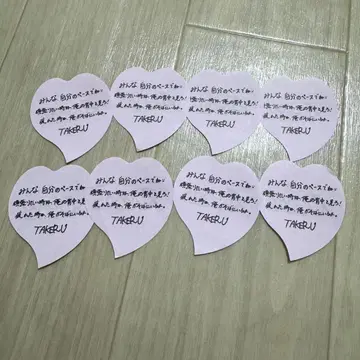 みんな 自分のペースで
頑張りたい時は、俺の背中を見ろ!
疲れた時は、俺がそばにいるから。
TAKERU
みんな 自分のペースで
頑張りたい時は、俺の背中を見ろ!
疲れた時は、俺がそばにいるから。
TAKERU
みんな 自分のペースで
頑張りたい時は、俺の背中を見ろ!
疲れた時は、俺がそばにいるから。
TAKERU
みんな 自分のペースで
頑張りたい時は、俺の背中を見ろ!
疲れた時は、俺がそばにいるから。
TAKERU
みんな 自分のペースで
頑張りたい時は、俺の背中を見ろ!
疲れた時は、俺がそばにいるから。
TAKERU
みんな 自分のペースで
頑張りたい時は、俺の背中を見ろ!
疲れた時は、俺がそばにいるから。
TAKERU
みんな 自分のペースで
頑張りたい時は、俺の背中を見ろ!
疲れた時は、俺がそばにいるから。
TAKERU
みんな 自分のペースで
頑張りたい時は、俺の背中を見ろ!
疲れた時は、俺がそばにいるから。
TAKERU